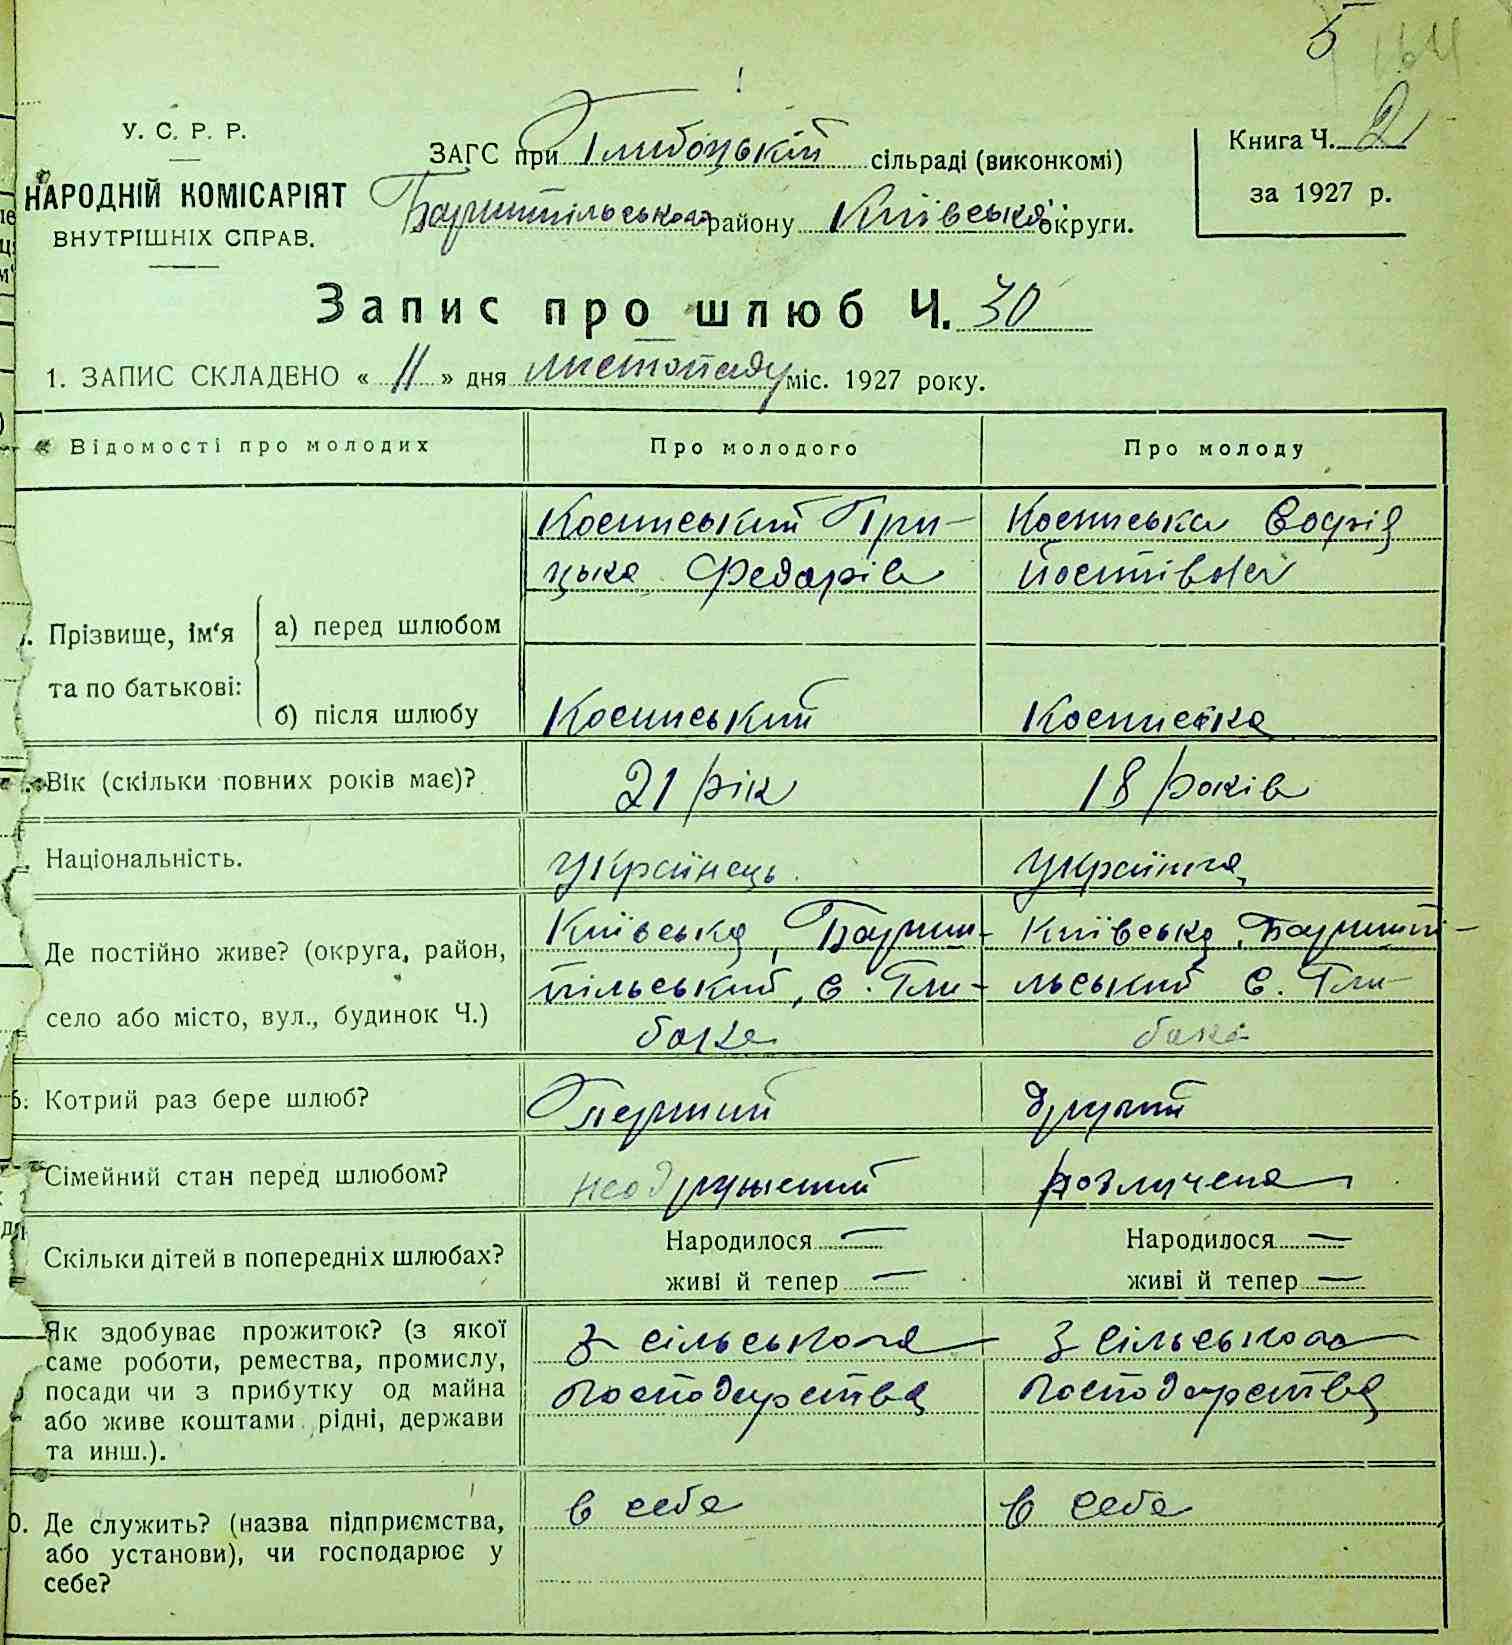 5
164
У. С. Р. Р.
НАРОДНІЙ КОМІСАРІЯТ
ВНУТРІШНІХ СПРАВ.
ЗАГС при Глибоцькій сільраді (виконкомі)
Бариспільського району Київської округи.
Книга Ч. 2
за 1927 р.
Запис про шлюб Ч. 30
1. ЗАПИС СКЛАДЕНО « 11 » дня листопаду міс. 1927 року.
Відомості про молодих
Про молодого
Про молоду
Прізвище, ім'я
та по батькові:
а) перед шлюбом
Гри-
цько Федорів
Софія
б) після шлюбу
Вік (скільки повних років має)?
21 рік
18 років
Національність.
українець
українка
Де постійно живе? (округа, район,
село або місто, вул., будинок Ч.)
Київська, Бориш-
пільський, с. Гли-
боке
Київська, Боришпі-
льський с. Гли-
боке
Котрий раз бере шлюб?
Перший
другий
Сімейний стан перед шлюбом?
неодружений
розлучена
Скільки дітей в попередніх шлюбах?
Народилося —
живі й тепер —
Народилося —
живі й тепер —
Як здобуває прожиток? (з якої
саме роботи, ремества, промислу,
посади чи з прибутку од майна
або живе коштами рідні, держави
та инш.).
З сільського
господарства
З сільського
господарства
0. Де служить? (назва підприємства,
або установи), чи господарює у
себе?
в себе
в себе